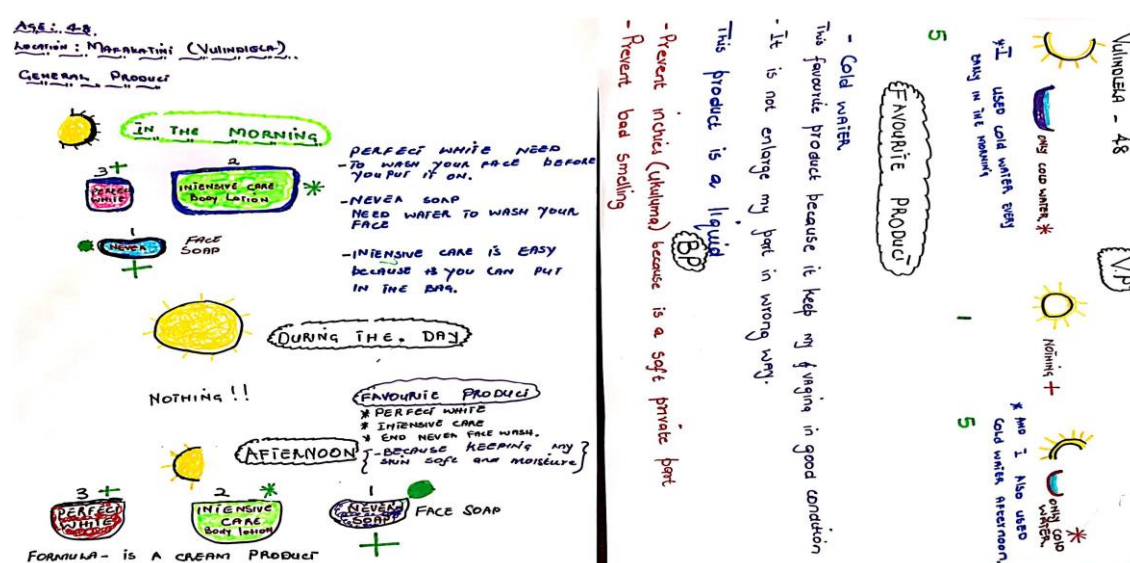 AGE: 48
LOCATION: MAFAKATINI (VULINDLELA).
GENERAL PRODUCT
IN THE MORNING
3 +
PERFECT
WHITE
2
INTENSIVE CARE
BODY LOTION *
1
NEVER
+
FACE
SOAP
PERFECT WHITE NEED
- TO WASH YOUR FACE BEFORE
YOU PUT IT ON.
- NEVER SOAP
NEED WATER TO WASH YOUR
FACE
- INTENSIVE CARE IS EASY
BECAUSE YOU CAN PUT
IN THE BAG.
DURING THE. DAY
NOTHING!!
FAVOURITE PRODUCT
* PERFECT WHITE
* INTENSIVE CARE
* END NEVER FACE WASH.
{ - BECAUSE KEEPING MY
SKIN SOFT AND MOISTURE }
AFTERNOON
3 +
PERFECT
WHITE
2 *
INTENSIVE
CARE
BODY LOTION
1
NEVER
SOAP
+
FACE SOAP
FORMULA - IS A CREAM PRODUCT
VULINDLELA - 48
V.P
ONLY COLD WATER *
NOTHING +
ONLY COLD
WATER *
* I USED COLD WATER EVERY
EARLY IN THE MORNING
* AND I ALSO USED
COLD WATER AFTERNOON.
5
1
5
FAVOURITE PRODUCT
- COLD WATER
This favourite product because it keep my vaging in good condition
- It is not enlarge my part in wrong way.
This product is a liquid
BP
- Prevent inchies (ukuluma) because is a soft private part
- Prevent bad smelling